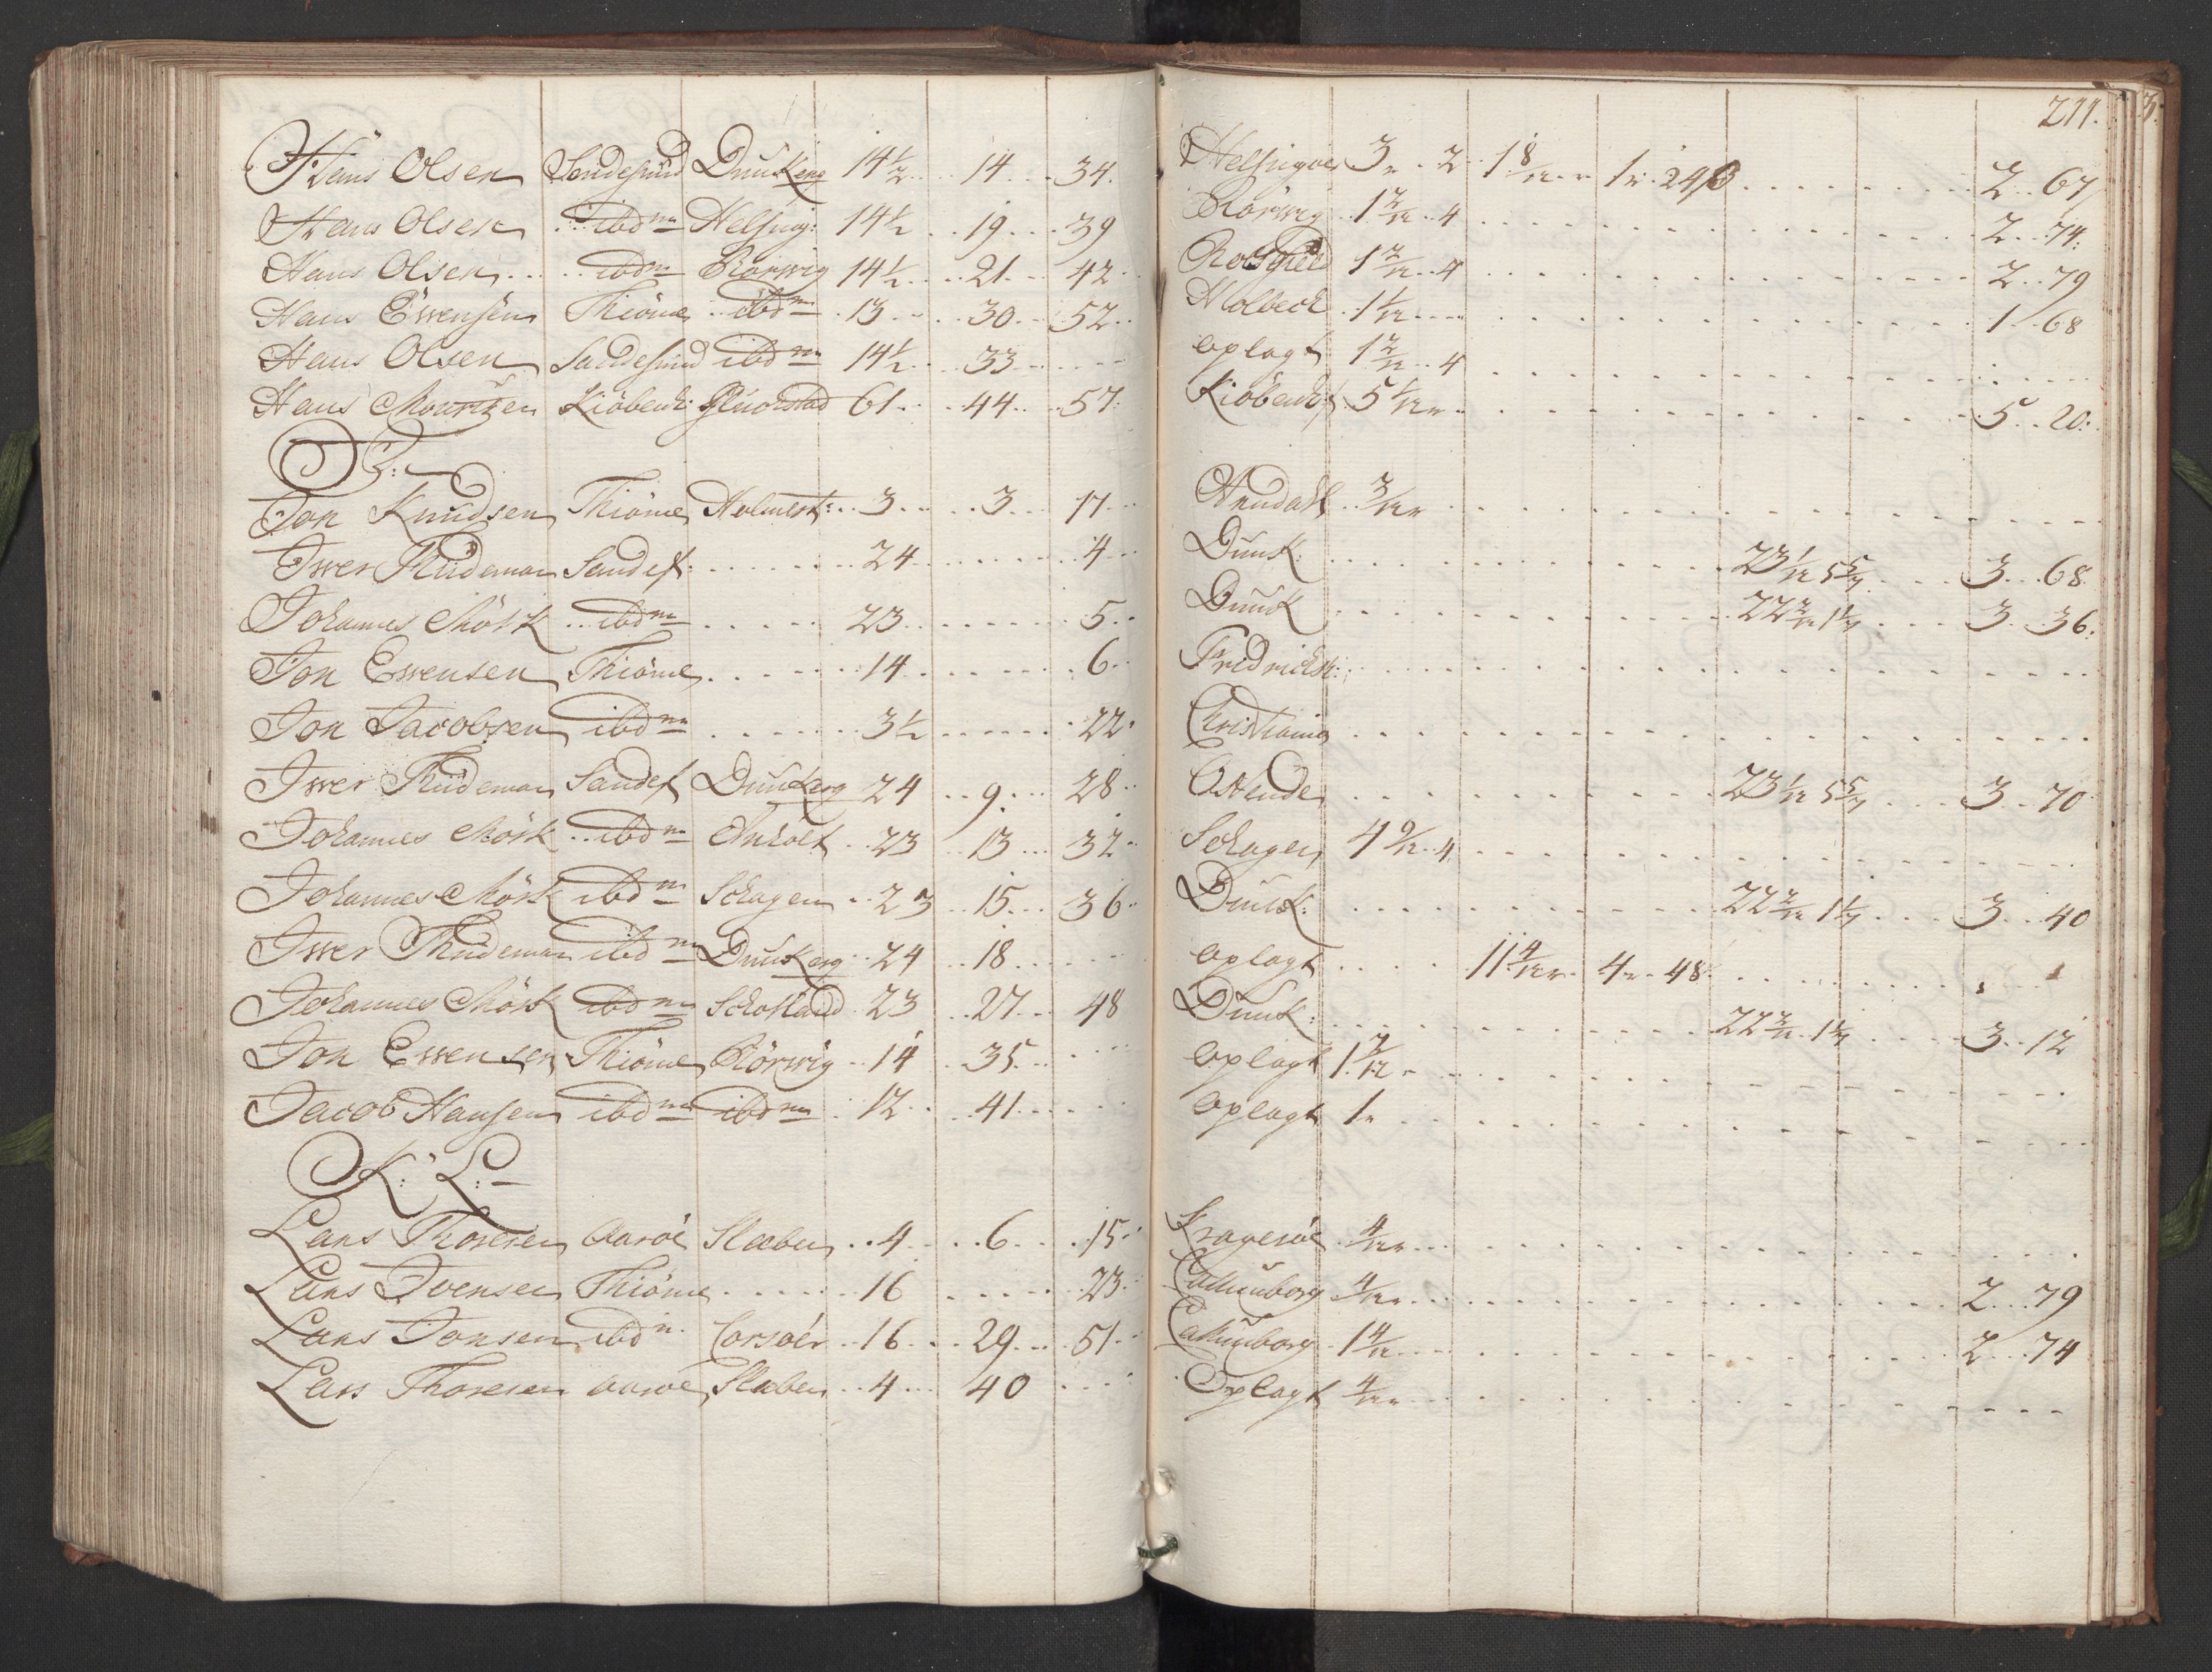 211.
H: Hans Olsen Sandesund Dunkerq 14½ 14 34. Helsingoer 3 2 1 8/12 1 24ß 2 67
Hans Olsen ibdm Helsing: 14½ 19 39 Rörwig 1 2/12 4 2 74:
Hans Olsen ibdm Rörwig 14½ 21 42 1 2/12 4 2 79
Hans Ewensen Thiöme ibdm 13 30 52 Holbech 1 1/12 1 68
Hans Olsen Sandesund ibdm 14½ 33 oplagt 1 2/12 4
Hans Kiöbenh: Gluckstad 61 44 57 Kiöbenh 5 1/12 5 20:
J:
Jon Knudsen Thiöme Holmest: 3 3 17 Arendahl 3/12
Iwer Thudeman Sandef: 24 4 Dunk: 23 1/12 5 5/7 3 68
Johannes Mörk ibdm 23 5 Dunk 22 2/12 1 1/7 3 36:
Jon Ewensen Thiöme 14 6 Fredrichst:
Jon Jacobsen ibdm 3½ 22 Christiania
Iwer Thudeman Sandef Dunkerq 24 9 28 Ostende 23 1/12 5 5/7 3 70
Johannes Mörk ibdm Anholt 23 13 32 Schagen 4 9/12 4
Johannes Mörk ibdm Schagen 23 15 36 Dunk: 22 2/12 1 1/7 3 40
Iwer Thudeman ibdm Dunkerq 24 18 oplagt 11 4/12 4 48
Johannes Mörk ibdm Schotland 23 27 48 Dunk: 22 2/12 1 1/7 3 12
Jon Ewensen Thiöme Rörwig 14 35 oplagt 1 2/12
Jacob Hansen ibdm ibdm 12 41 oplagt 1
K: L:
Lars Thoresen Aaröe Slæben 4 6 15 Kragerøe 4/12
Lars Ivensen Thiöme 16 23 Callundborg 4/12 2 79
Lars Jonsen ibdm Corsöer 16 29 51 Callundborg 1 4/12 2 74
Lars Thoresen Aaroe Slæben 4 40 Oplagt 4/12